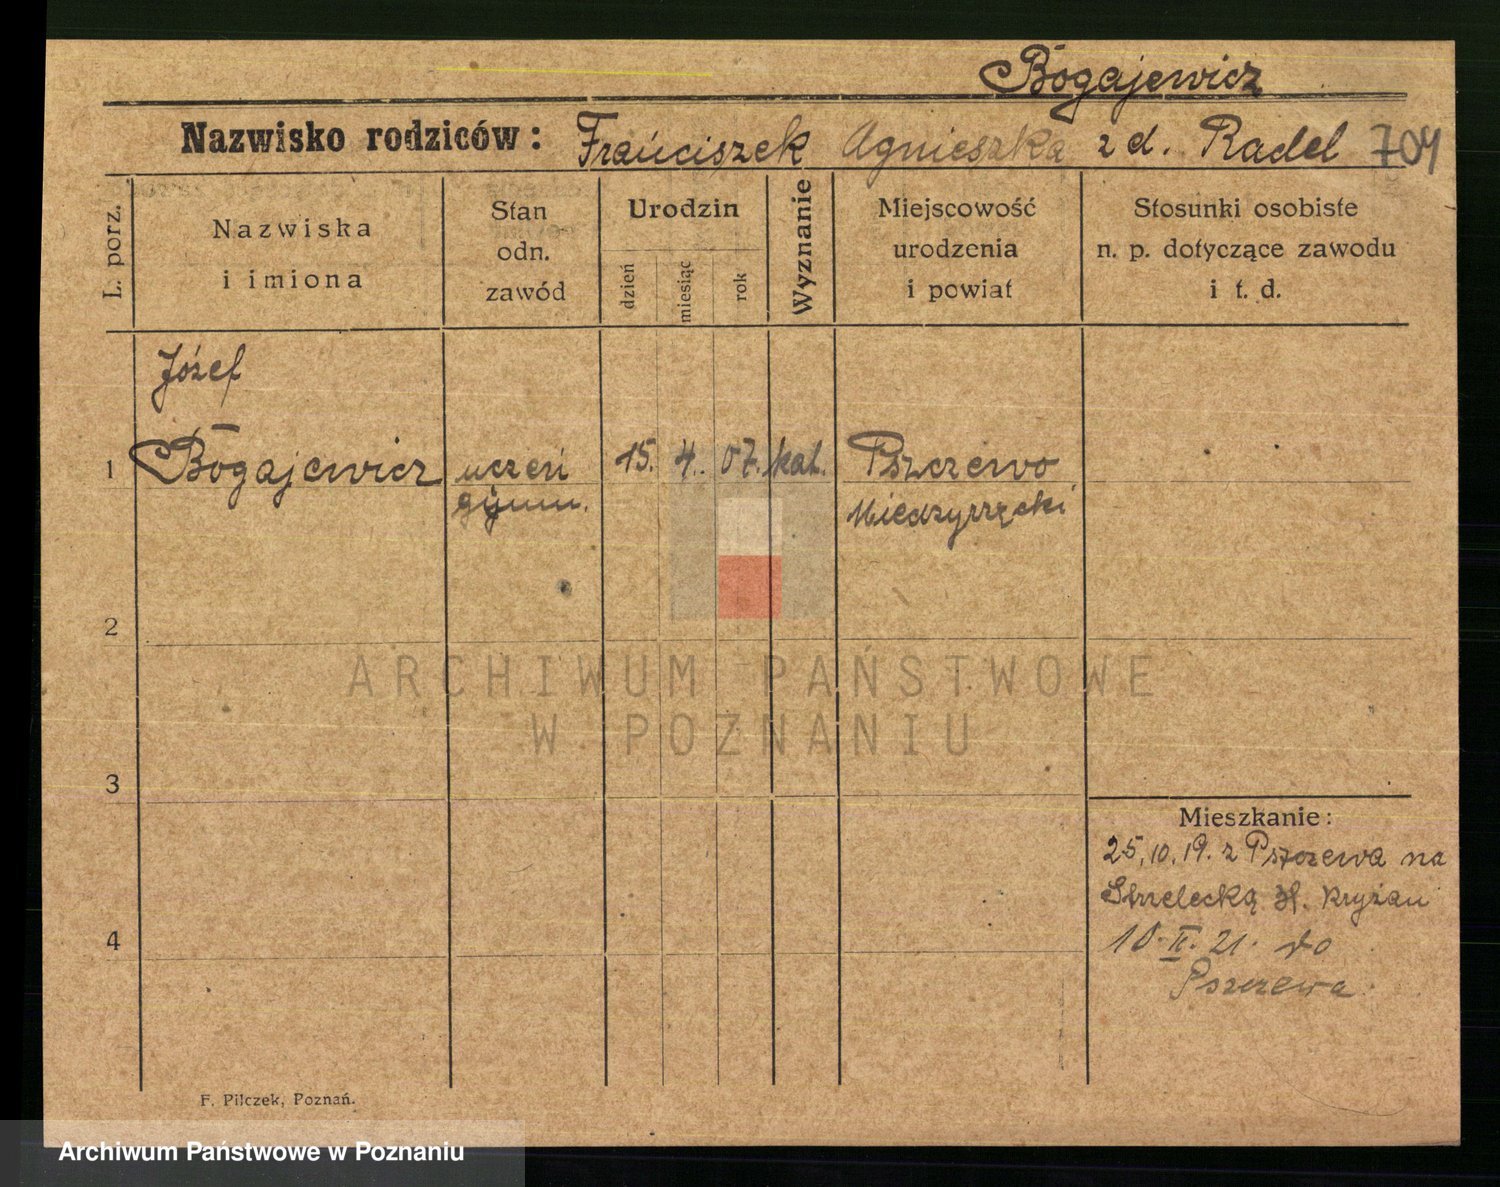 Bogajewicz
Nazwisko rodziców: Franciszek Agnieszka z d. Radel 704
L. porz.
Nazwiska
i imiona
Stan
odn.
zawód
Urodzin
dzień
miesiąc
rok
Wyznanie
Miejscowość
urodzenia
i powiat
Stosunki osobiste
n. p. dotyczące zawodu
i t. d.
Józef
1 Bogajewicz uczeń 15. 4. 07. kat. Pszczewo
gimn. Międzyrzecki
2
ARCHIWUM PAŃSTWOWE
W POZNANIU
3
Mieszkanie:
25.10.19. z Pszczewa na
Strzelecką
4
10. II. 21. do
Pszczewa
F. Pilczek, Poznań.
Archiwum Państwowe w Poznaniu